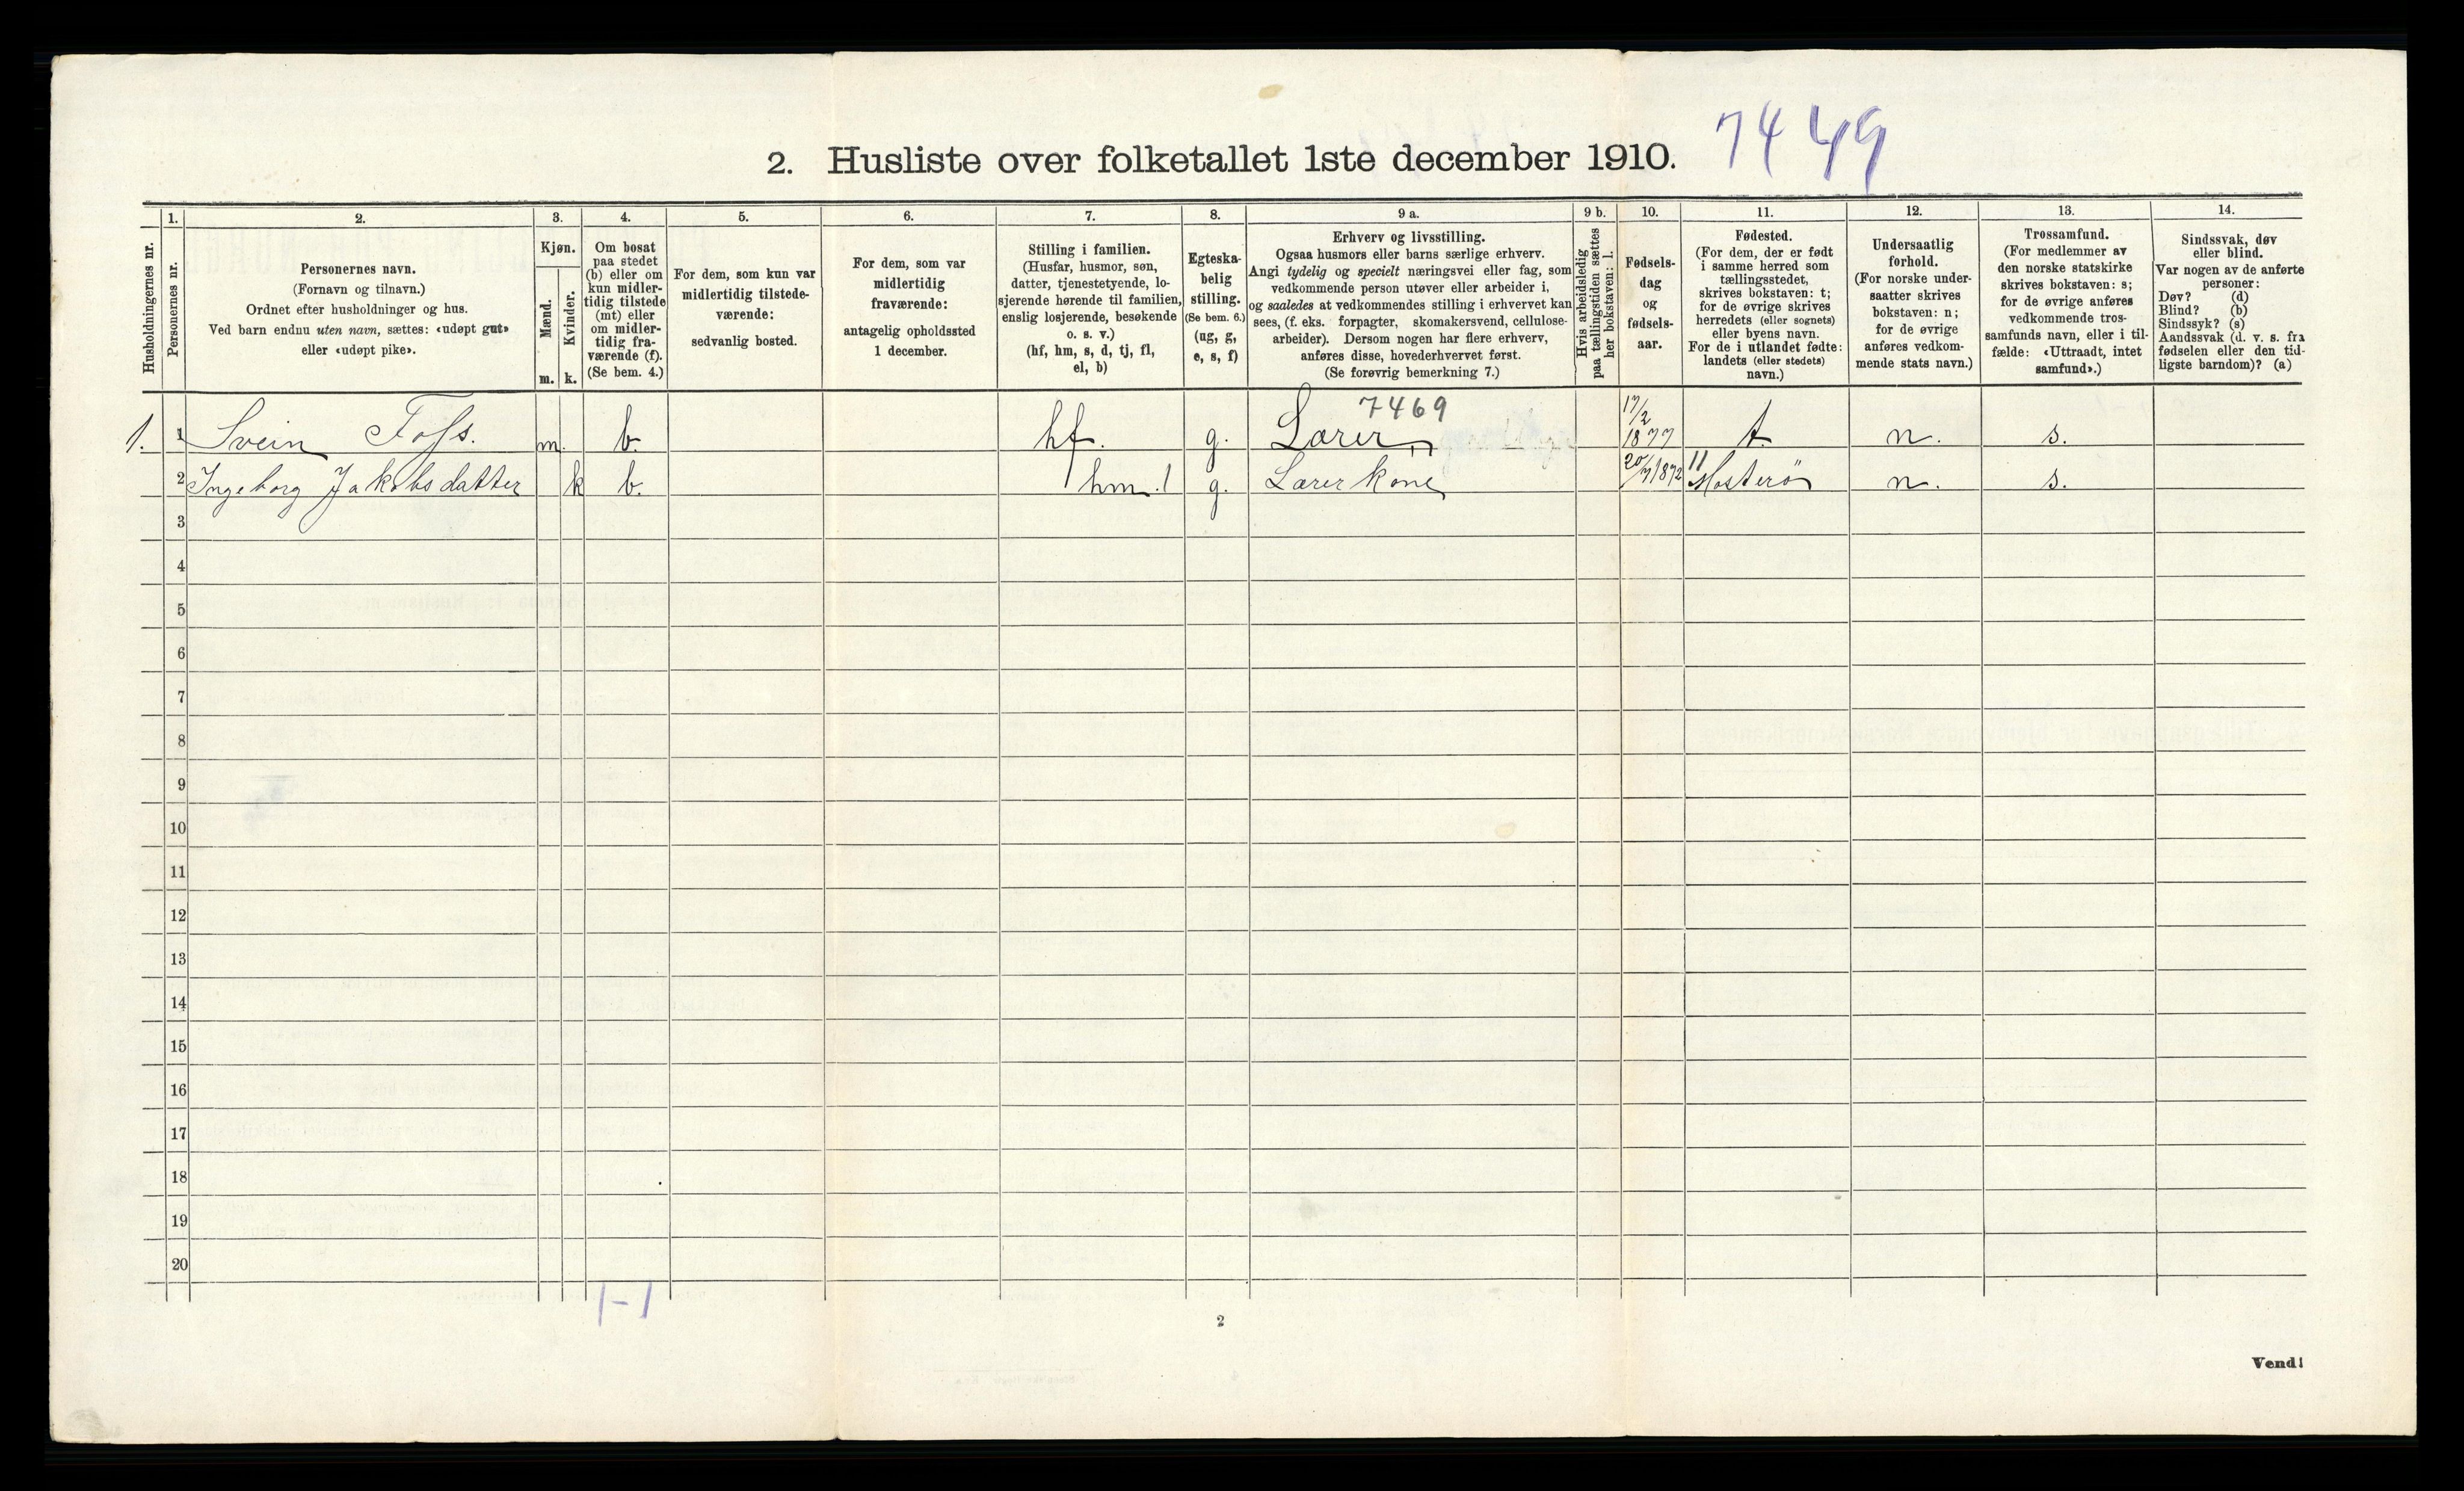 2. Husliste over folketallet 1ste december 1910. 7449
1. 2. 3. 4. 5. 6. 7. 8. 9 a. 9 b. 10. 11. 12. 13. 14.
Husholdningernes nr.
Personernes nr.
Personernes navn.
(Fornavn og tilnavn.)
Ordnet efter husholdninger og hus.
Ved barn endnu uten navn, sættes: «udøpt gut»
eller «udøpt pike».
Kjøn.
Mænd.
Kvinder.
m. k.
Om bosat
paa stedet
(b) eller om
kun midler-
tidig tilstede
(mt) eller
om midler-
tidig fra-
værende (f).
(Se bem. 4.)
For dem, som kun var
midlertidig tilstede-
værende:
sedvanlig bosted.
For dem, som var
midlertidig
fraværende:
antagelig opholdssted
1 december.
Stilling i familien.
(Husfar, husmor, søn,
datter, tjenestetyende, lo-
sjerende hørende til familien,
enslig losjerende, besøkende
o. s. v.)
(hf, hm, s, d, tj, fl,
el, b)
Egteska-
belig
stilling.
(Se bem. 6.)
(ug, g,
e, s, f)
Erhverv og livsstilling.
Ogsaa husmors eller barns særlige erhverv.
Angi tydelig og specielt næringsvei eller fag, som
vedkommende person utøver eller arbeider i,
og saaledes at vedkommendes stilling i erhvervet kan
sees, (f. eks. forpagter, skomakersvend, cellulose-
arbeider). Dersom nogen har flere erhverv,
anføres disse, hovederhvervet først.
(Se forøvrig bemerkning 7.)
Hvis arbeidsledig
paa tællingstiden sættes
her bokstaven: l.
Fødsels-
dag
og
fødsels-
aar.
Fødested.
(For dem, der er født
i samme herred som
tællingsstedet,
skrives bokstaven: t;
for de øvrige skrives
herredets (eller sognets)
eller byens navn.
For de i utlandet fødte:
landets (eller stedets)
navn.)
Undersaatlig
forhold.
(For norske under-
saatter skrives
bokstaven: n;
for de øvrige
anføres vedkom-
mende stats navn.)
Trossamfund.
(For medlemmer av
den norske statskirke
skrives bokstaven: s;
for de øvrige anføres
vedkommende tros-
samfunds navn, eller i til-
fælde: «Uttraadt, intet
samfund».)
Sindssvak, døv
eller blind.
Var nogen av de anførte
personer:
Døv? (d)
Blind? (b)
Sindssyk? (s)
Aandssvak (d. v. s. fra
fødselen eller den tid-
ligste barndom)? (a)
7469
1. 1 Svein Foss. m. b. hf. g. Lærer 17/2 1877 t. n. s.
2 Ingeborg Jakobsdatter k b. hm. g. Lærerkone 20/7 1872 11 Mosterö n. s.
3
4
5
6
7
8
9
10
11
12
13
14
15
16
17
18
19
20
1-1
2
Vend!